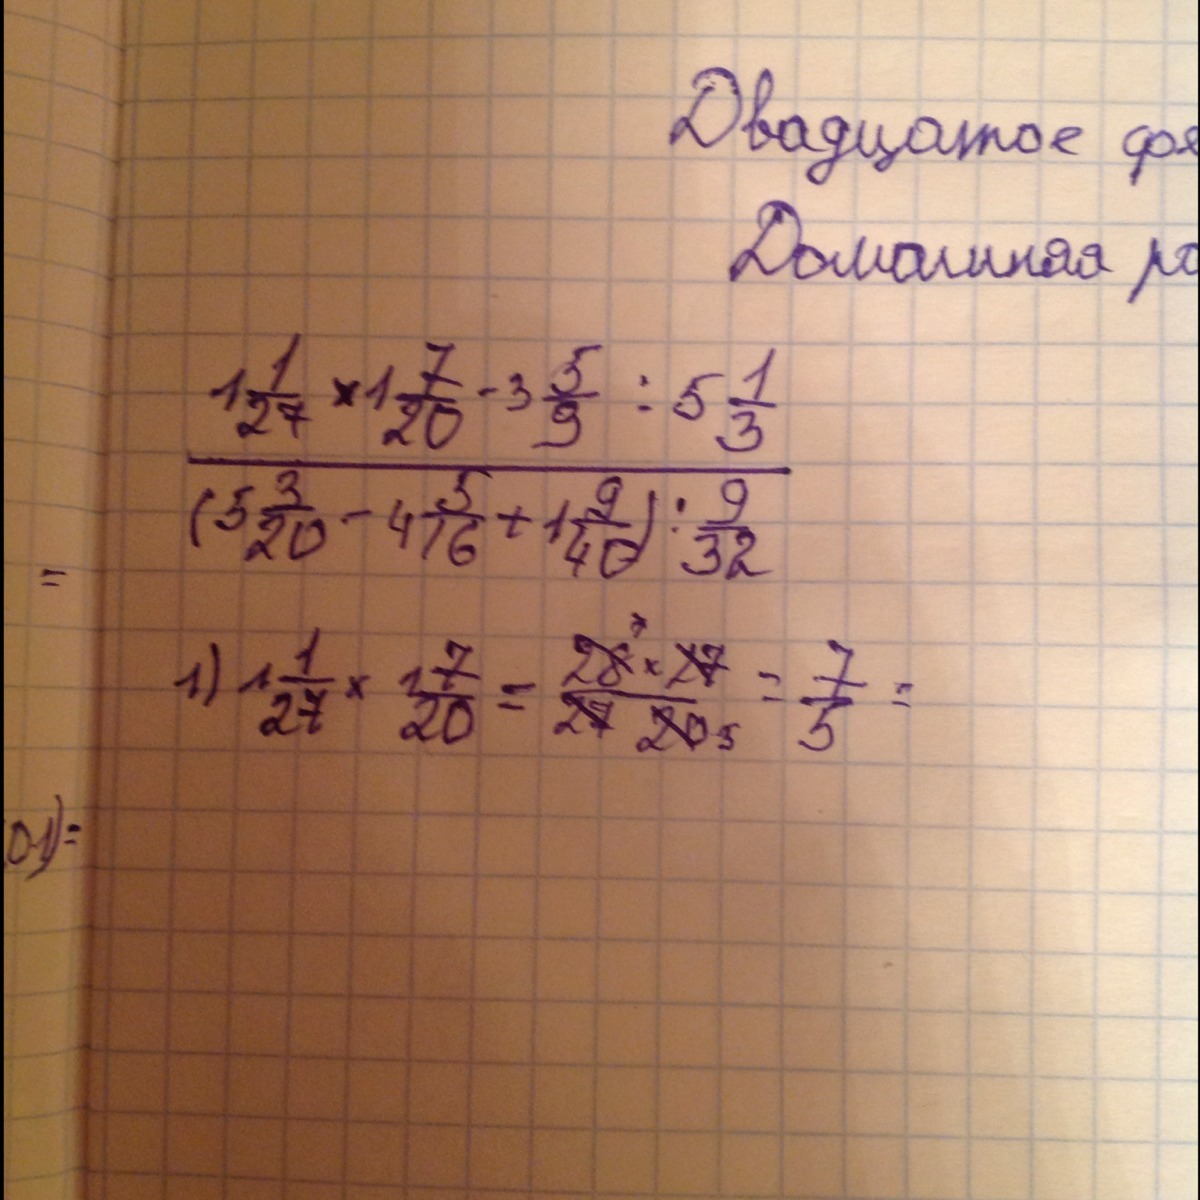 Двадцатое
Домашняя
1 1/27 × 1 7/20 - 3 5/9 : 5 1/3
(5 3/20 - 4 5/16 + 1 9/40) : 9/32
=
1) 1 1/27 × 1 7/20 = 28 7 × 27 / 27 20 5 = 7/5 =
01)=